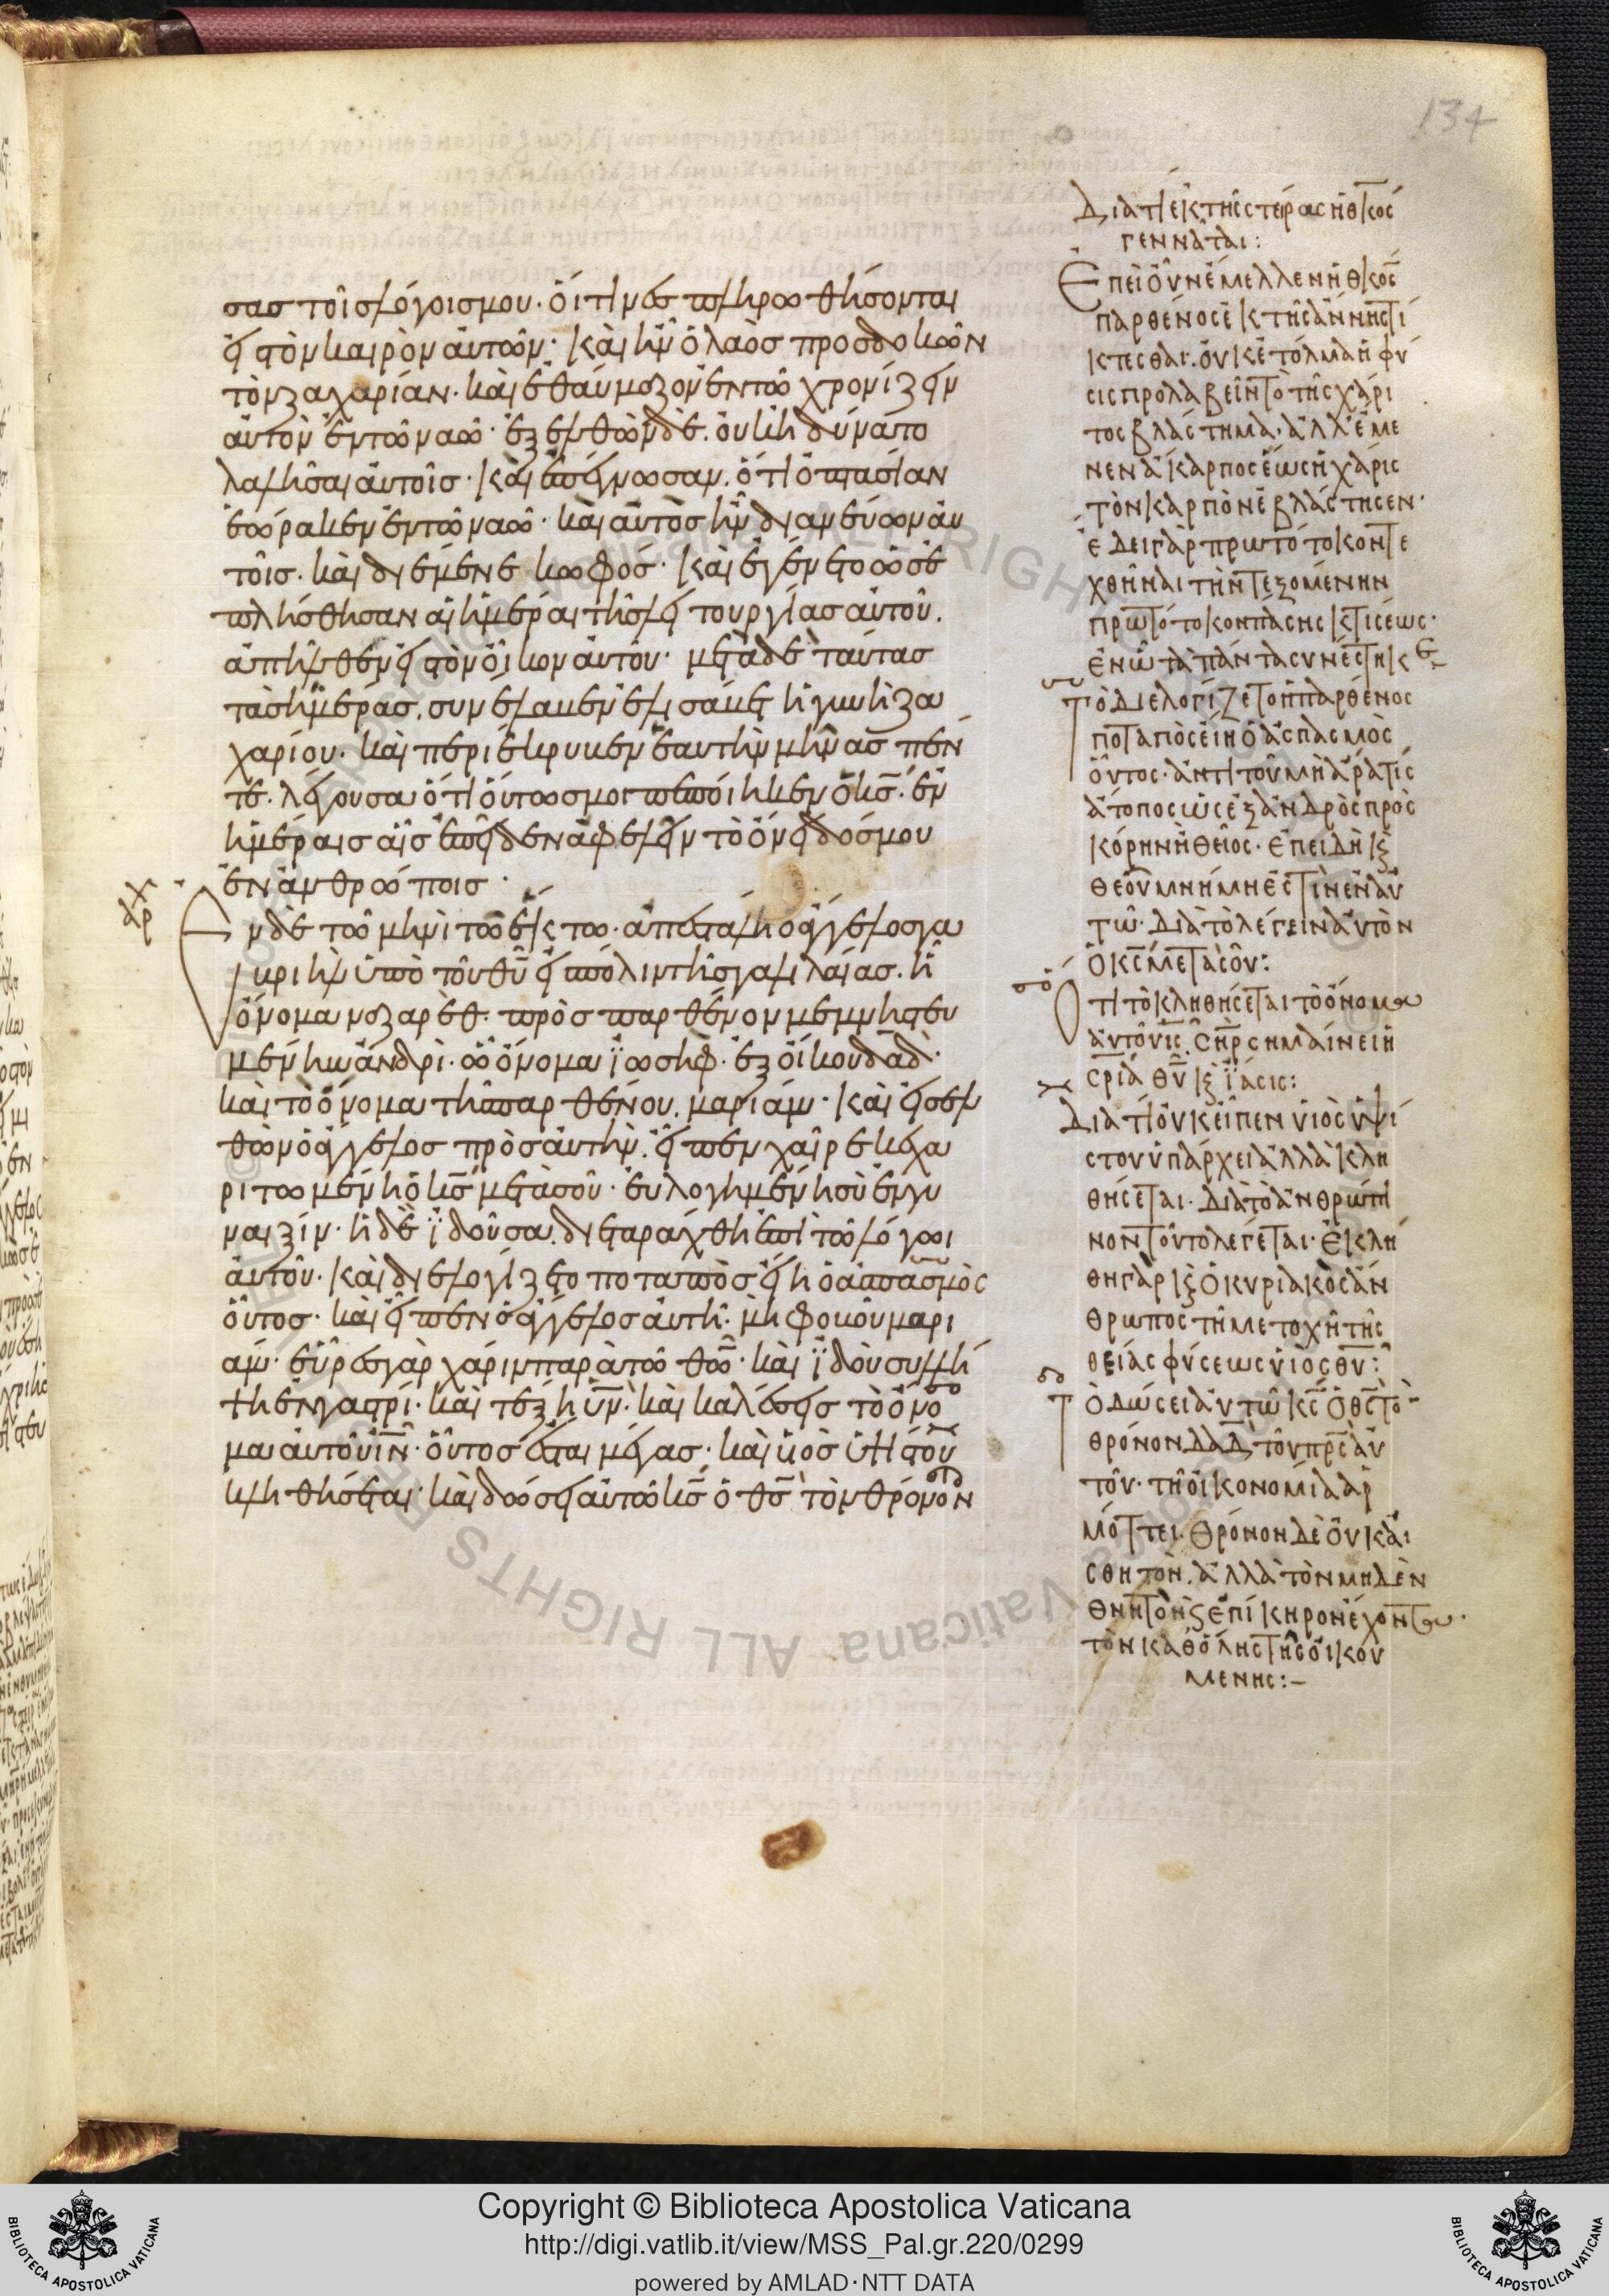 134
σας τοῖς λόγοις μου· οἵτινες πληρωθήσονται
εἰς τὸν καιρὸν αὐτῶν· καὶ ἦν ὁ λαὸς προσδοκῶν
τὸν ζαχαρίαν· καὶ ἐθαύμαζον ἐν τῶ χρονίζειν
αὐτὸν ἐν τῶ ναῶ· ἐξελθὼν δὲ. οὐκ ἠδύνατο
λαλῆσαι αὐτοῖς· καὶ ἐπέγνωσαν. ὅτι ὀπτασίαν
ἑώρακεν ἐν τῶ ναῶ· καὶ αὐτὸς ἦν διανεύων αὐ
τοῖς· καὶ διέμενε κωφός· καὶ ἐγένετο ὡς ἐ
πλήσθησαν αἱ ἡμέραι τῆς λειτουργίας αὐτοῦ.
ἀπῆλθεν εἰς τὸν οἶκον αὐτοῦ· μετὰ δὲ ταύτας
τὰς ἡμέρας. συνέλαβεν ἐλισάβετ ἡ γυνὴ ζα
χαρίου· καὶ περιέκρυβεν ἑαυτὴν μῆνας πέν
τε. λέγουσα ὅτι οὕτως μοι πεποίηκεν ὁ κ̅ς̅. ἐν
ἡμέραις αἷς ἐπεῖδεν ἀφελεῖν τὸ ὄνειδός μου
ἐν ἀνθρώποις·
ἀρχ
Ἐν δὲ τῶ μηνὶ τῶ ἕκτω. ἀπεστάλη ὁ ἄγγελος γα
βριὴλ ὑπὸ τοῦ θ̅υ̅ εἰς πόλιν τῆς γαλιλαίας. ἧ
ὄνομα ναζαρέθ· πρὸς παρθένον μεμνηστευ
μένην ἀνδρὶ. ὧ ὄνομα ἰωσήφ. ἐξ οἴκου δα̅δ̅·
καὶ τὸ ὄνομα τῆς παρθένου. μαριάμ· καὶ εἰσελ
θὼν ὁ ἄγγελος πρὸς αὐτὴν. εἶπεν χαῖρε κεχα
ριτωμένη ὁ κ̅ς̅ μετὰ σοῦ· εὐλογημένη σὺ ἐν γυ
ναιξίν· ἡ δὲ ἰδοῦσα. διεταράχθη ἐπὶ τῶ λόγωι
αὐτοῦ· καὶ διελογίζετο ποταπὸς εἴη ὁ ἀσπασμὸς
οὗτος· καὶ εἶπεν ὁ ἄγγελος αὐτῆ· μὴ φοβοῦ μαρι
άμ· εὗρες γὰρ χάριν παρὰ τῶ θ̅ῶ̅· καὶ ἰδοὺ συλλή
ψη ἐν γαστρί· καὶ τέξη υ̅ν̅· καὶ καλέσεις τὸ ὄνο
μα αὐτοῦ ι̅ν̅· οὗτος ἔσται μέγας. καὶ υἱὸς ὑψίστου
κληθήσεται· καὶ δώσει αὐτῶ κ̅ς̅ ὁ θ̅ς̅ τὸν θρόνον
Διατί ἐκ τῆς στείρας ἡ θκος
γεννᾶται:
Ἐπεὶ οὖν ἔμελλεν ἡ θκος
παρθένος ἐκ τῆς ἄννης τί
κτεσθαι. οὐκ ἐτόλμα ἡ φύ
σις προλαβεῖν τὸ τῆς χάρι
τος βλάστημα. ἀλλ' ἔμε
νεν ἄκαρπος ἕως ἡ χάρις
τὸν καρπὸν ἐβλάστησεν·
ἔδει γὰρ πρωτότοκον τε
χθῆναι τὴν τεξομένην
πρωτότοκον πάσης κτίσεως·
ἐν ὧ τὰ πάντα συνέστηκε
Τὸ διελογίζετο ἡ παρθένος
ποταπὸς εἴη ὁ ἀσπασμὸς
οὗτος. ἀντὶ τοῦ μὴ ἄρα τίς
ἄτοπος ὡς ἐξ ἀνδρὸς πρὸς
κόρην ἢ θεῖος. ἐπειδὴ κ
θεοῦ μνήμη ἐστὶν ἐν αὐ
τῶ· διὰ τὸ λέγειν αὐτὸν
ὁ κ̅ς̅ μετὰ σοῦ:
Ὅτι τὸ κληθήσεται τὸ ὄνομα
αὐτοῦ ι̅ς̅. σ̅η̅ρ̅ σημαίνει ἡ
σ̅ρ̅ία θ̅υ̅ κ ἴασις:
Διατί οὐκ εἶπεν υἱὸς ὑψί
στου ὑπάρχει ἀλλὰ κλη
θήσεται. διὰ τὸ ἀνθρώπι
νον τοῦτο λέγεται. ἐκλή
θη γὰρ κ ὁ κυριακὸς ἄν
θρωπος τῆ μετοχῆ τῆς
θείας φύσεως υἱὸς θ̅υ̅:
Τὸ δώσει αὐτῶ κ̅ς̅ ὁ θ̅ς̅ τὸ
θρόνον δα̅δ̅ τοῦ π̅ρ̅ς̅ αὐ
τοῦ· τῆ οἰκονομία ἁρ
μόττει. θρόνον δὲ οὐκ αἰ
σθητὸν. ἀλλὰ τὸν μηδὲν
θνητὸν κ ἐπίκηρον ἔχοντα.
τὸν καθ' ὅλης τῆς οἰκου
μένης:–
Copyright © Biblioteca Apostolica Vaticana
http://digi.vatlib.it/view/MSS_Pal.gr.220/0299
powered by AMLAD·NTT DATA
BIBLIOTECA APOSTOLICA VATICANA
BIBLIOTECA APOSTOLICA VATICANA